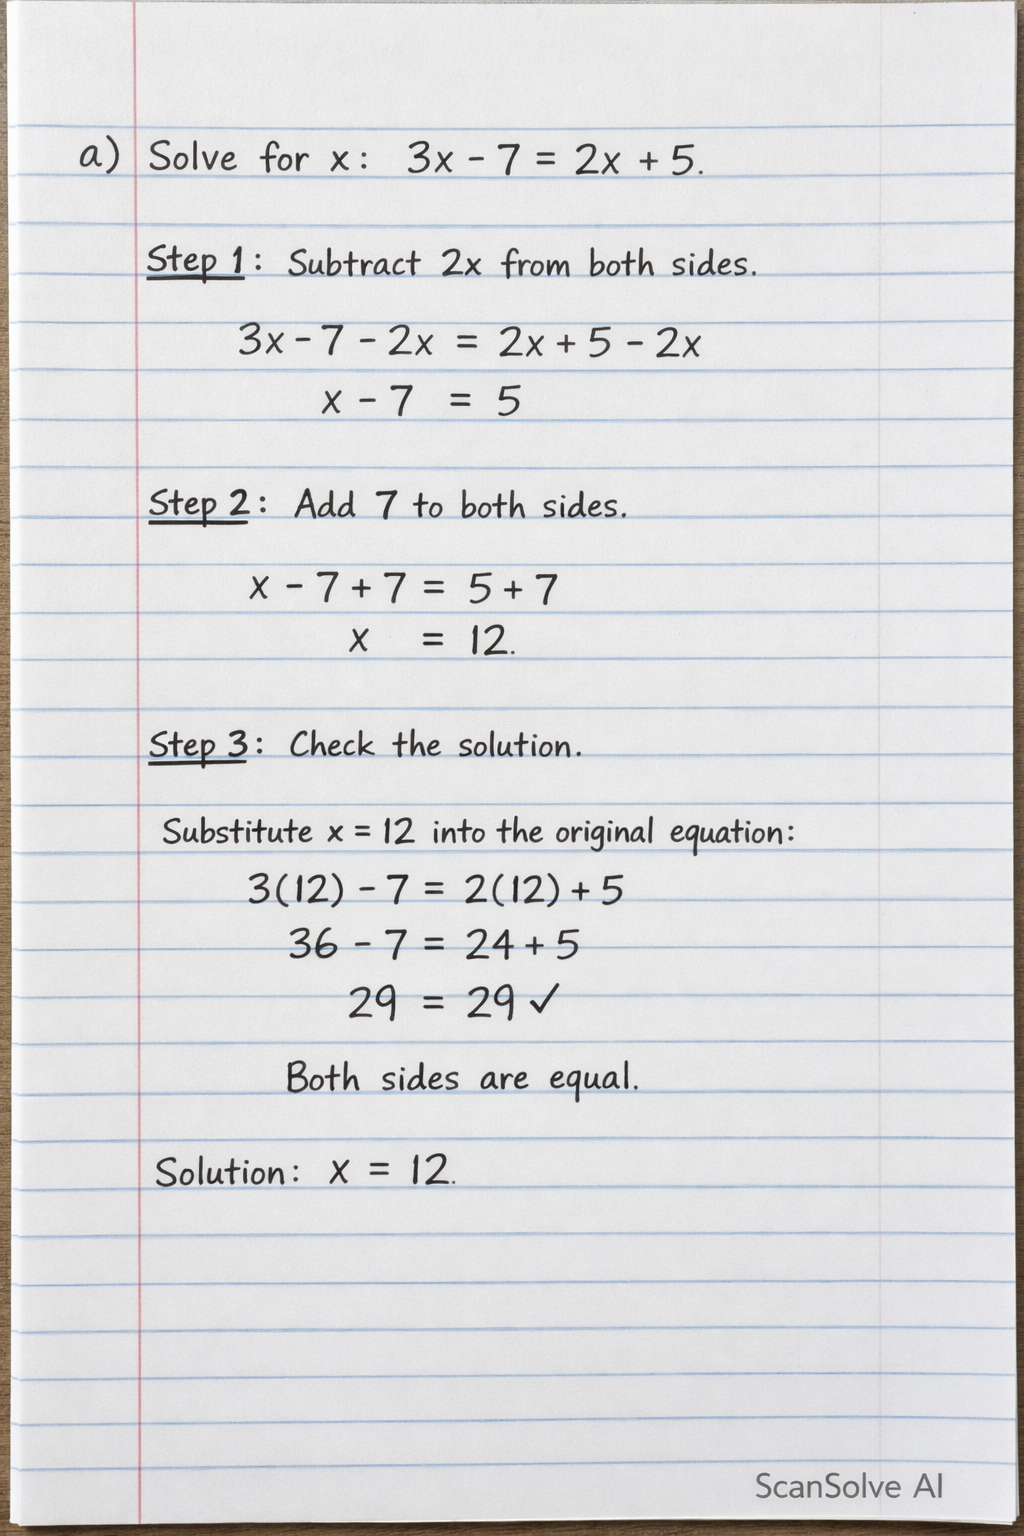 a) Solve for x: 3x - 7 = 2x + 5.
Step 1: Subtract 2x from both sides.
3x - 7 - 2x = 2x + 5 - 2x
x - 7 = 5
Step 2: Add 7 to both sides.
x - 7 + 7 = 5 + 7
x = 12.
Step 3: Check the solution.
Substitute x = 12 into the original equation:
3(12) - 7 = 2(12) + 5
36 - 7 = 24 + 5
29 = 29 ✓
Both sides are equal.
Solution: x = 12.
ScanSolve AI